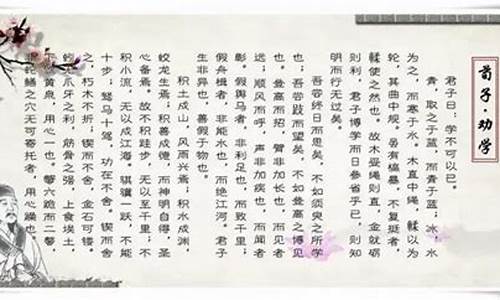 荀子·劝学
君子曰:学不可以已。
青,取之于蓝,而青于蓝;冰,水
为之,而寒于水。木直中绳,輮以为
轮,其曲中规。虽有槁暴,不复挺者,
輮使之然也。故木受绳则直,金就砺
则利,君子博学而日参省乎己,则知
明而行无过矣。
吾尝终日而思矣,不如须臾之所学
也;吾尝跂而望矣,不如登高之博见
也。登高而招,臂非加长也,而见者
远;顺风而呼,声非加疾也,而闻者
彰。假舆马者,非利足也,而致千里;
假舟楫者,非能水也,而绝江河。君子
生非异也,善假于物也。
积土成山,风雨兴焉;积水成渊,
蛟龙生焉;积善成德,而神明自得,圣
心备焉。故不积跬步,无以至千里;不
积小流,无以成江海。骐骥一跃,不能
十步;驽马十驾,功在不舍。锲而舍
之,朽木不折;锲而不舍,金石可镂。
蚓无爪牙之利,筋骨之强,上食埃土,
下饮黄泉,用心一也。蟹六跪而二螯,
非蛇鳝之穴无可寄托者,用心躁也